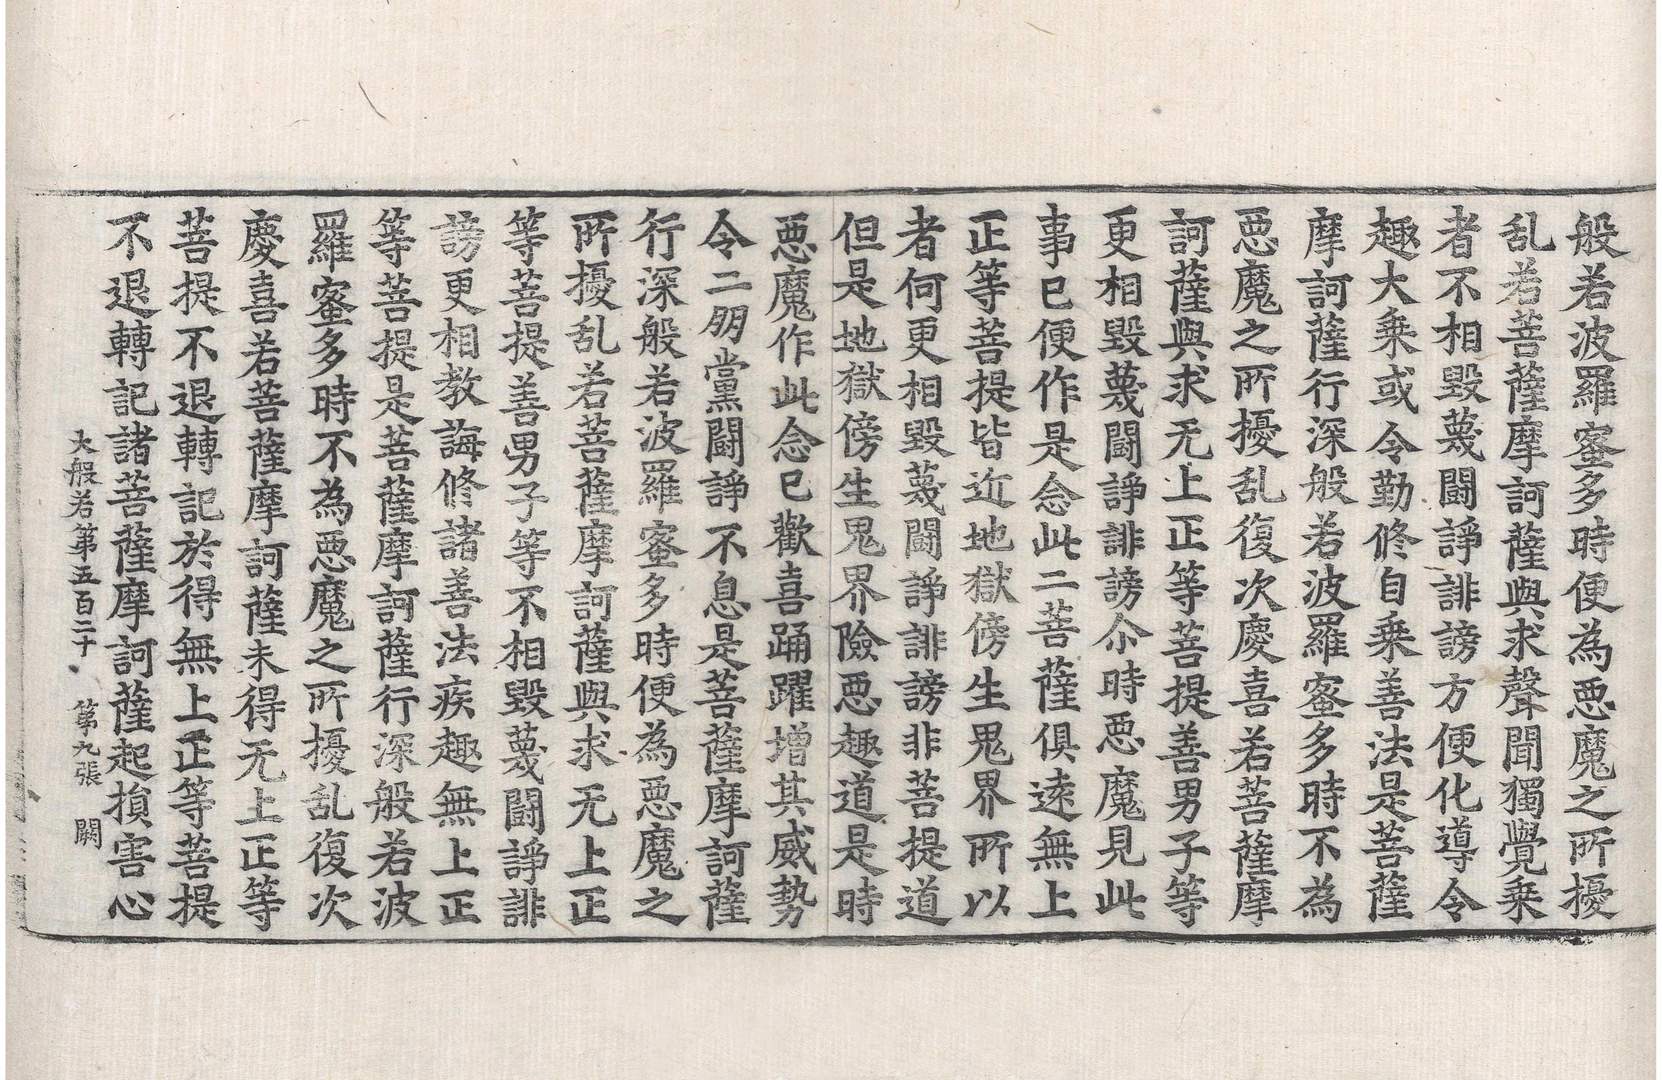 般若波羅蜜多時便為悪魔之所擾
乱若菩薩摩訶薩與求聲聞獨覺乗
者不相毀蔑闘諍誹謗方便化導令
趣大乗或令勤修自乗善法是菩薩
摩訶薩行深般若波羅蜜多時不為
悪魔之所擾乱復次慶喜若菩薩摩
訶薩與求无上正等菩提善男子等
更相毀蔑闘諍誹謗尒時悪魔見此
事已便作是念此二菩薩俱遠無上
正等菩提皆近地獄傍生鬼界所以
者何更相毀蔑闘諍誹謗非菩提道
但是地獄傍生鬼界險悪趣道是時
悪魔作此念已歡喜踊躍增其威勢
令二朋黨闘諍不息是菩薩摩訶薩
行深般若波羅蜜多時便為悪魔之
所擾乱若菩薩摩訶薩與求无上正
等菩提善男子等不相毀蔑闘諍誹
謗更相教誨修諸善法疾趣無上正
等菩提是菩薩摩訶薩行深般若波
羅蜜多時不為悪魔之所擾乱復次
慶喜若菩薩摩訶薩未得无上正等
菩提不退轉記於得無上正等菩提
不退轉記諸菩薩摩訶薩起損害心
大般若第五百二十　第九張　闕